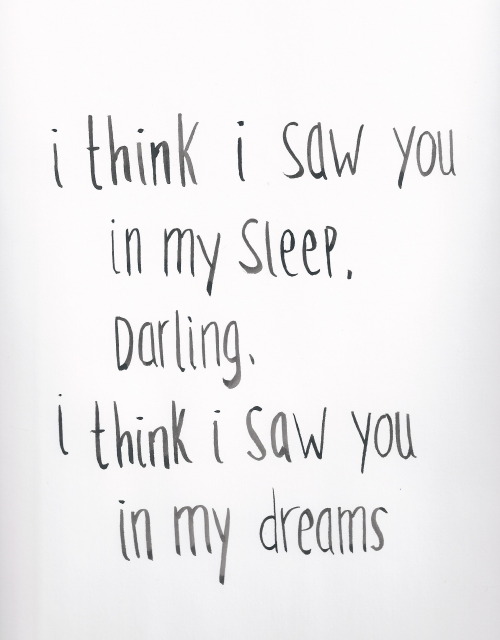 i think i saw you
in my sleep,
Darling,
i think i saw you
in my dreams